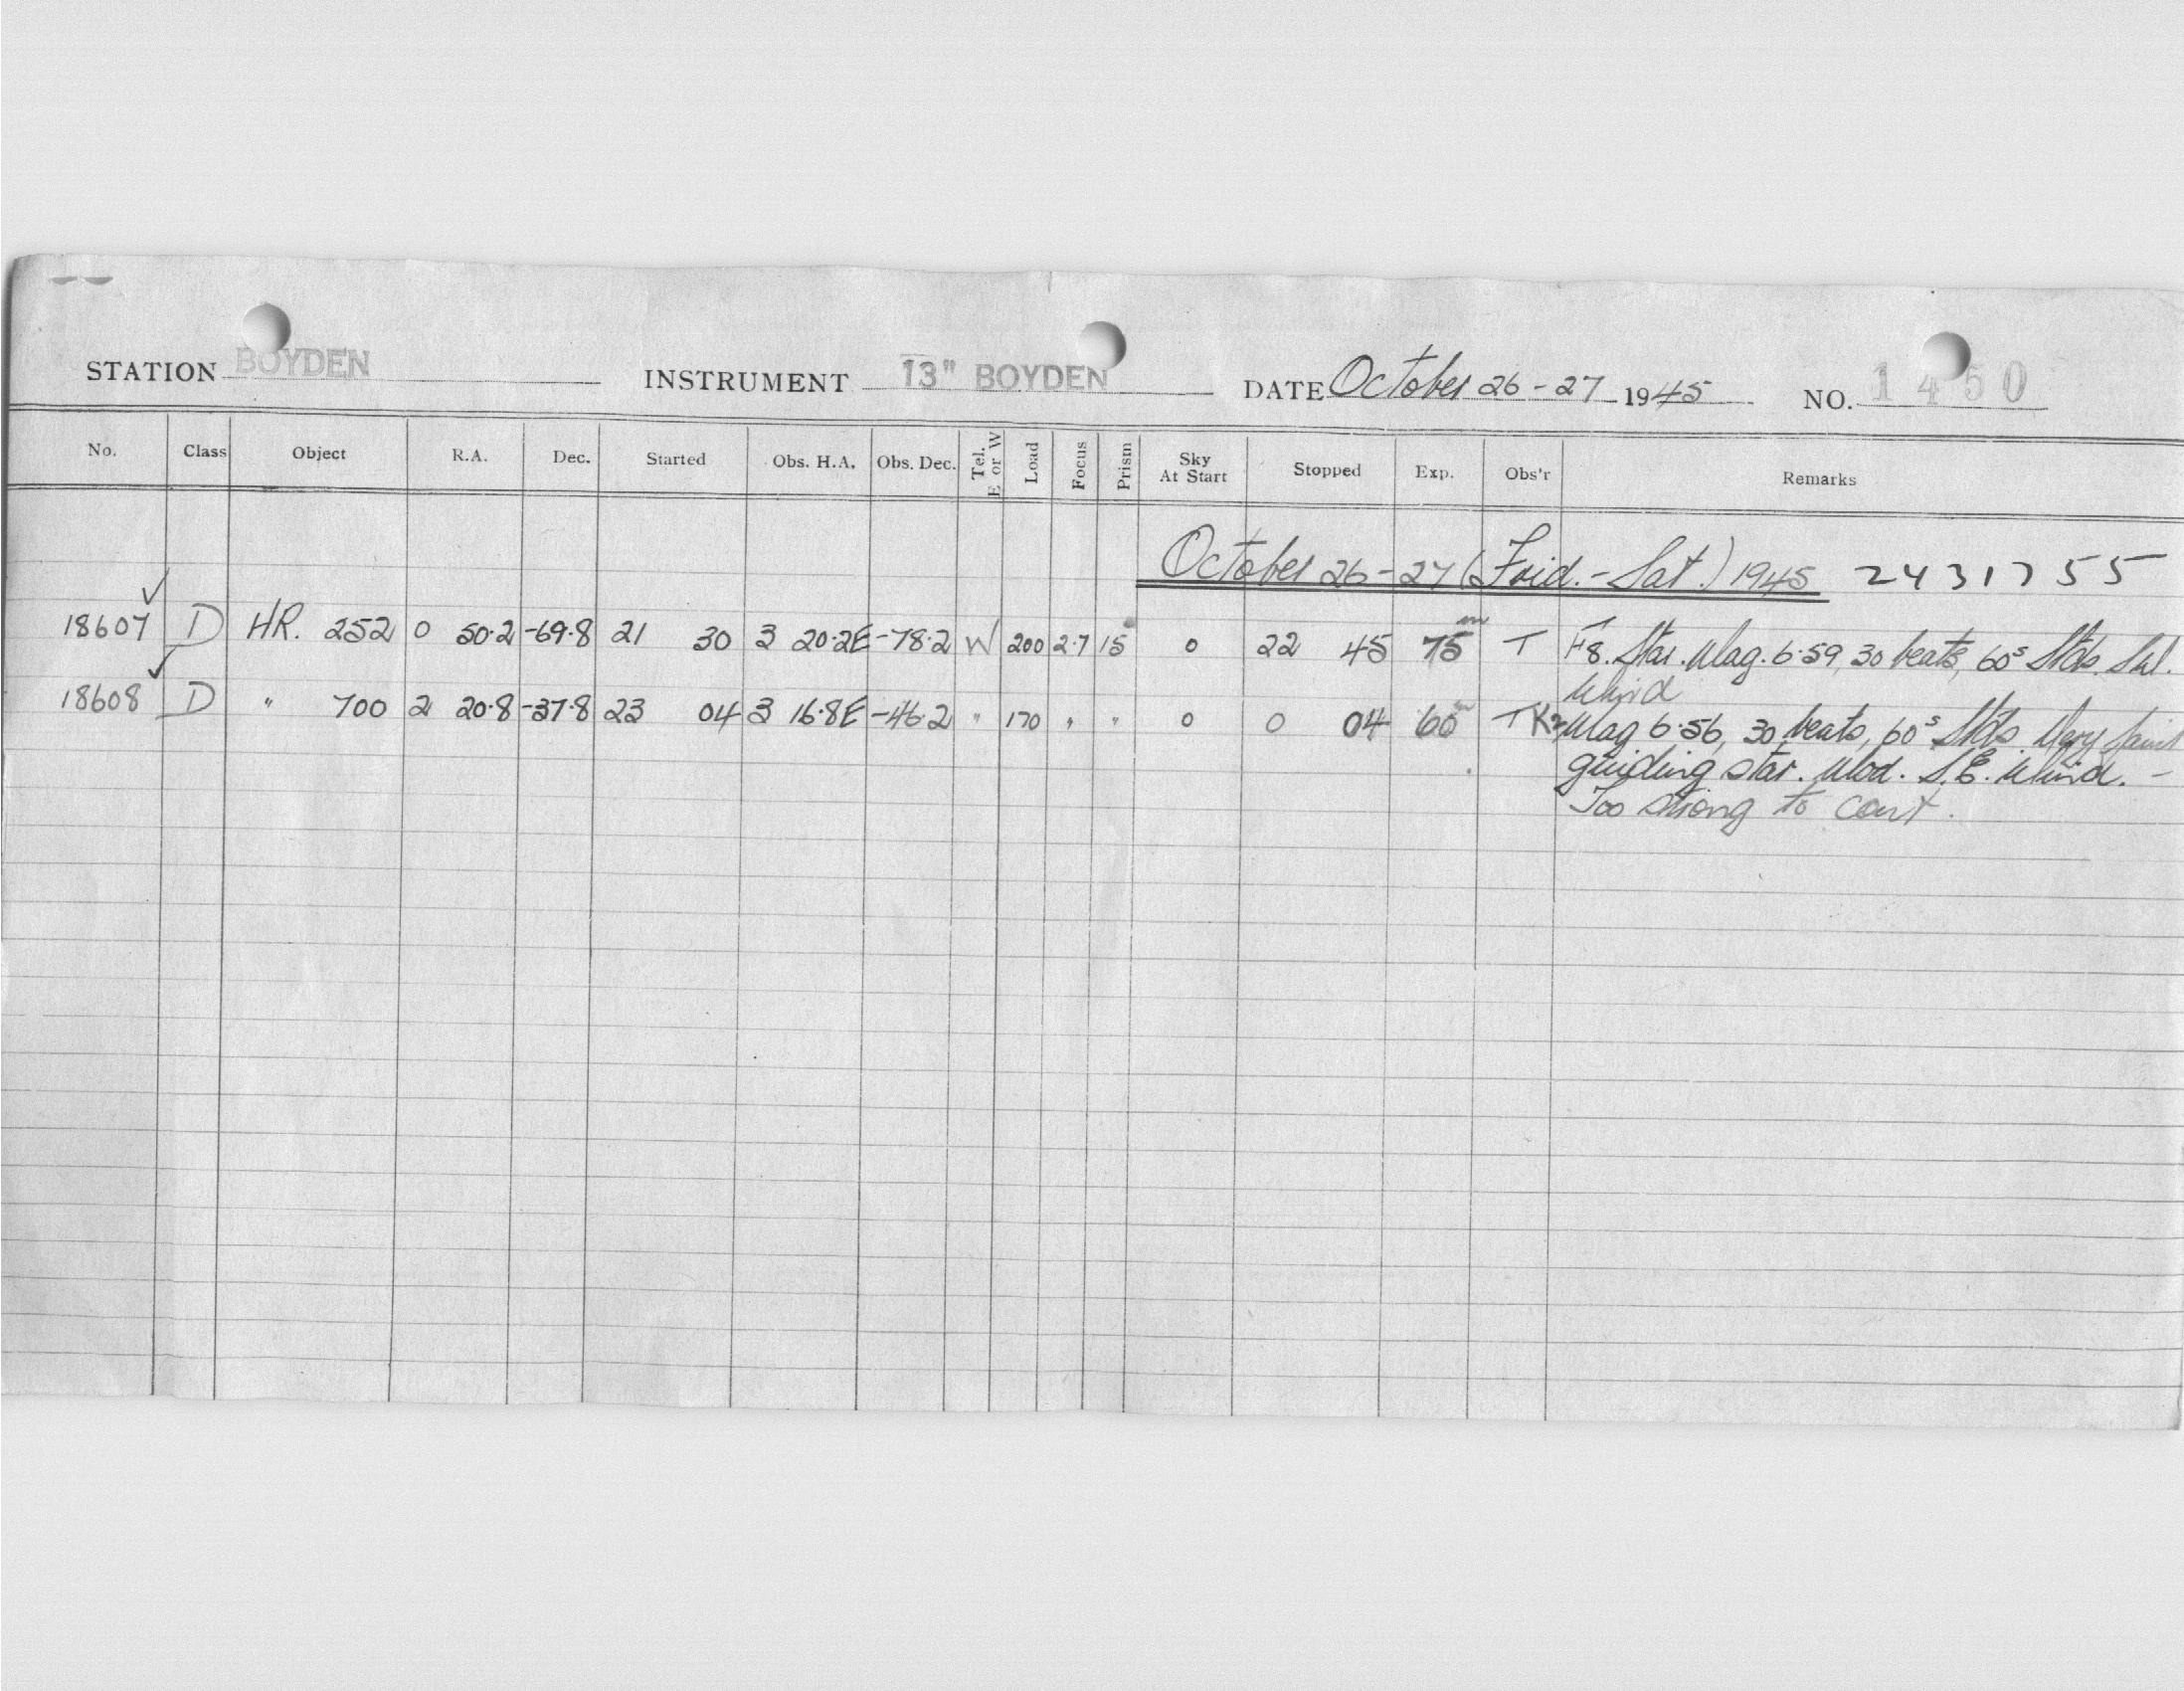 STATION BOYDEN INSTRUMENT 13" BOYDEN DATE October 26-27 1945 NO. 1450
No. Class Object R.A. Dec. Started Obs. H.A. Obs. Dec. Tel. E or W Load Focus Prism Sky At Start Stopped Exp. Obs'r Remarks
October 26-27 (Frid.-Sat.) 1945 2431755
18607 D HR. 252 0 50.2 -69.8 21 30 3 20.2E -78.2 W 200 2.7 15° 0 22 45 75m T F8. Star. Mag. 6.59, 30 beats, 60s Stds.
Wind
18608 D " 700 2 20.8 -37.8 23 04 3 16.8E -46.2 " 170 " " 0 0 04 60m T K2 Mag 6.56, 30 beats, 60s Stds. Very faint
guiding star. Mod. S.E. Wind. -
Too strong to cont.